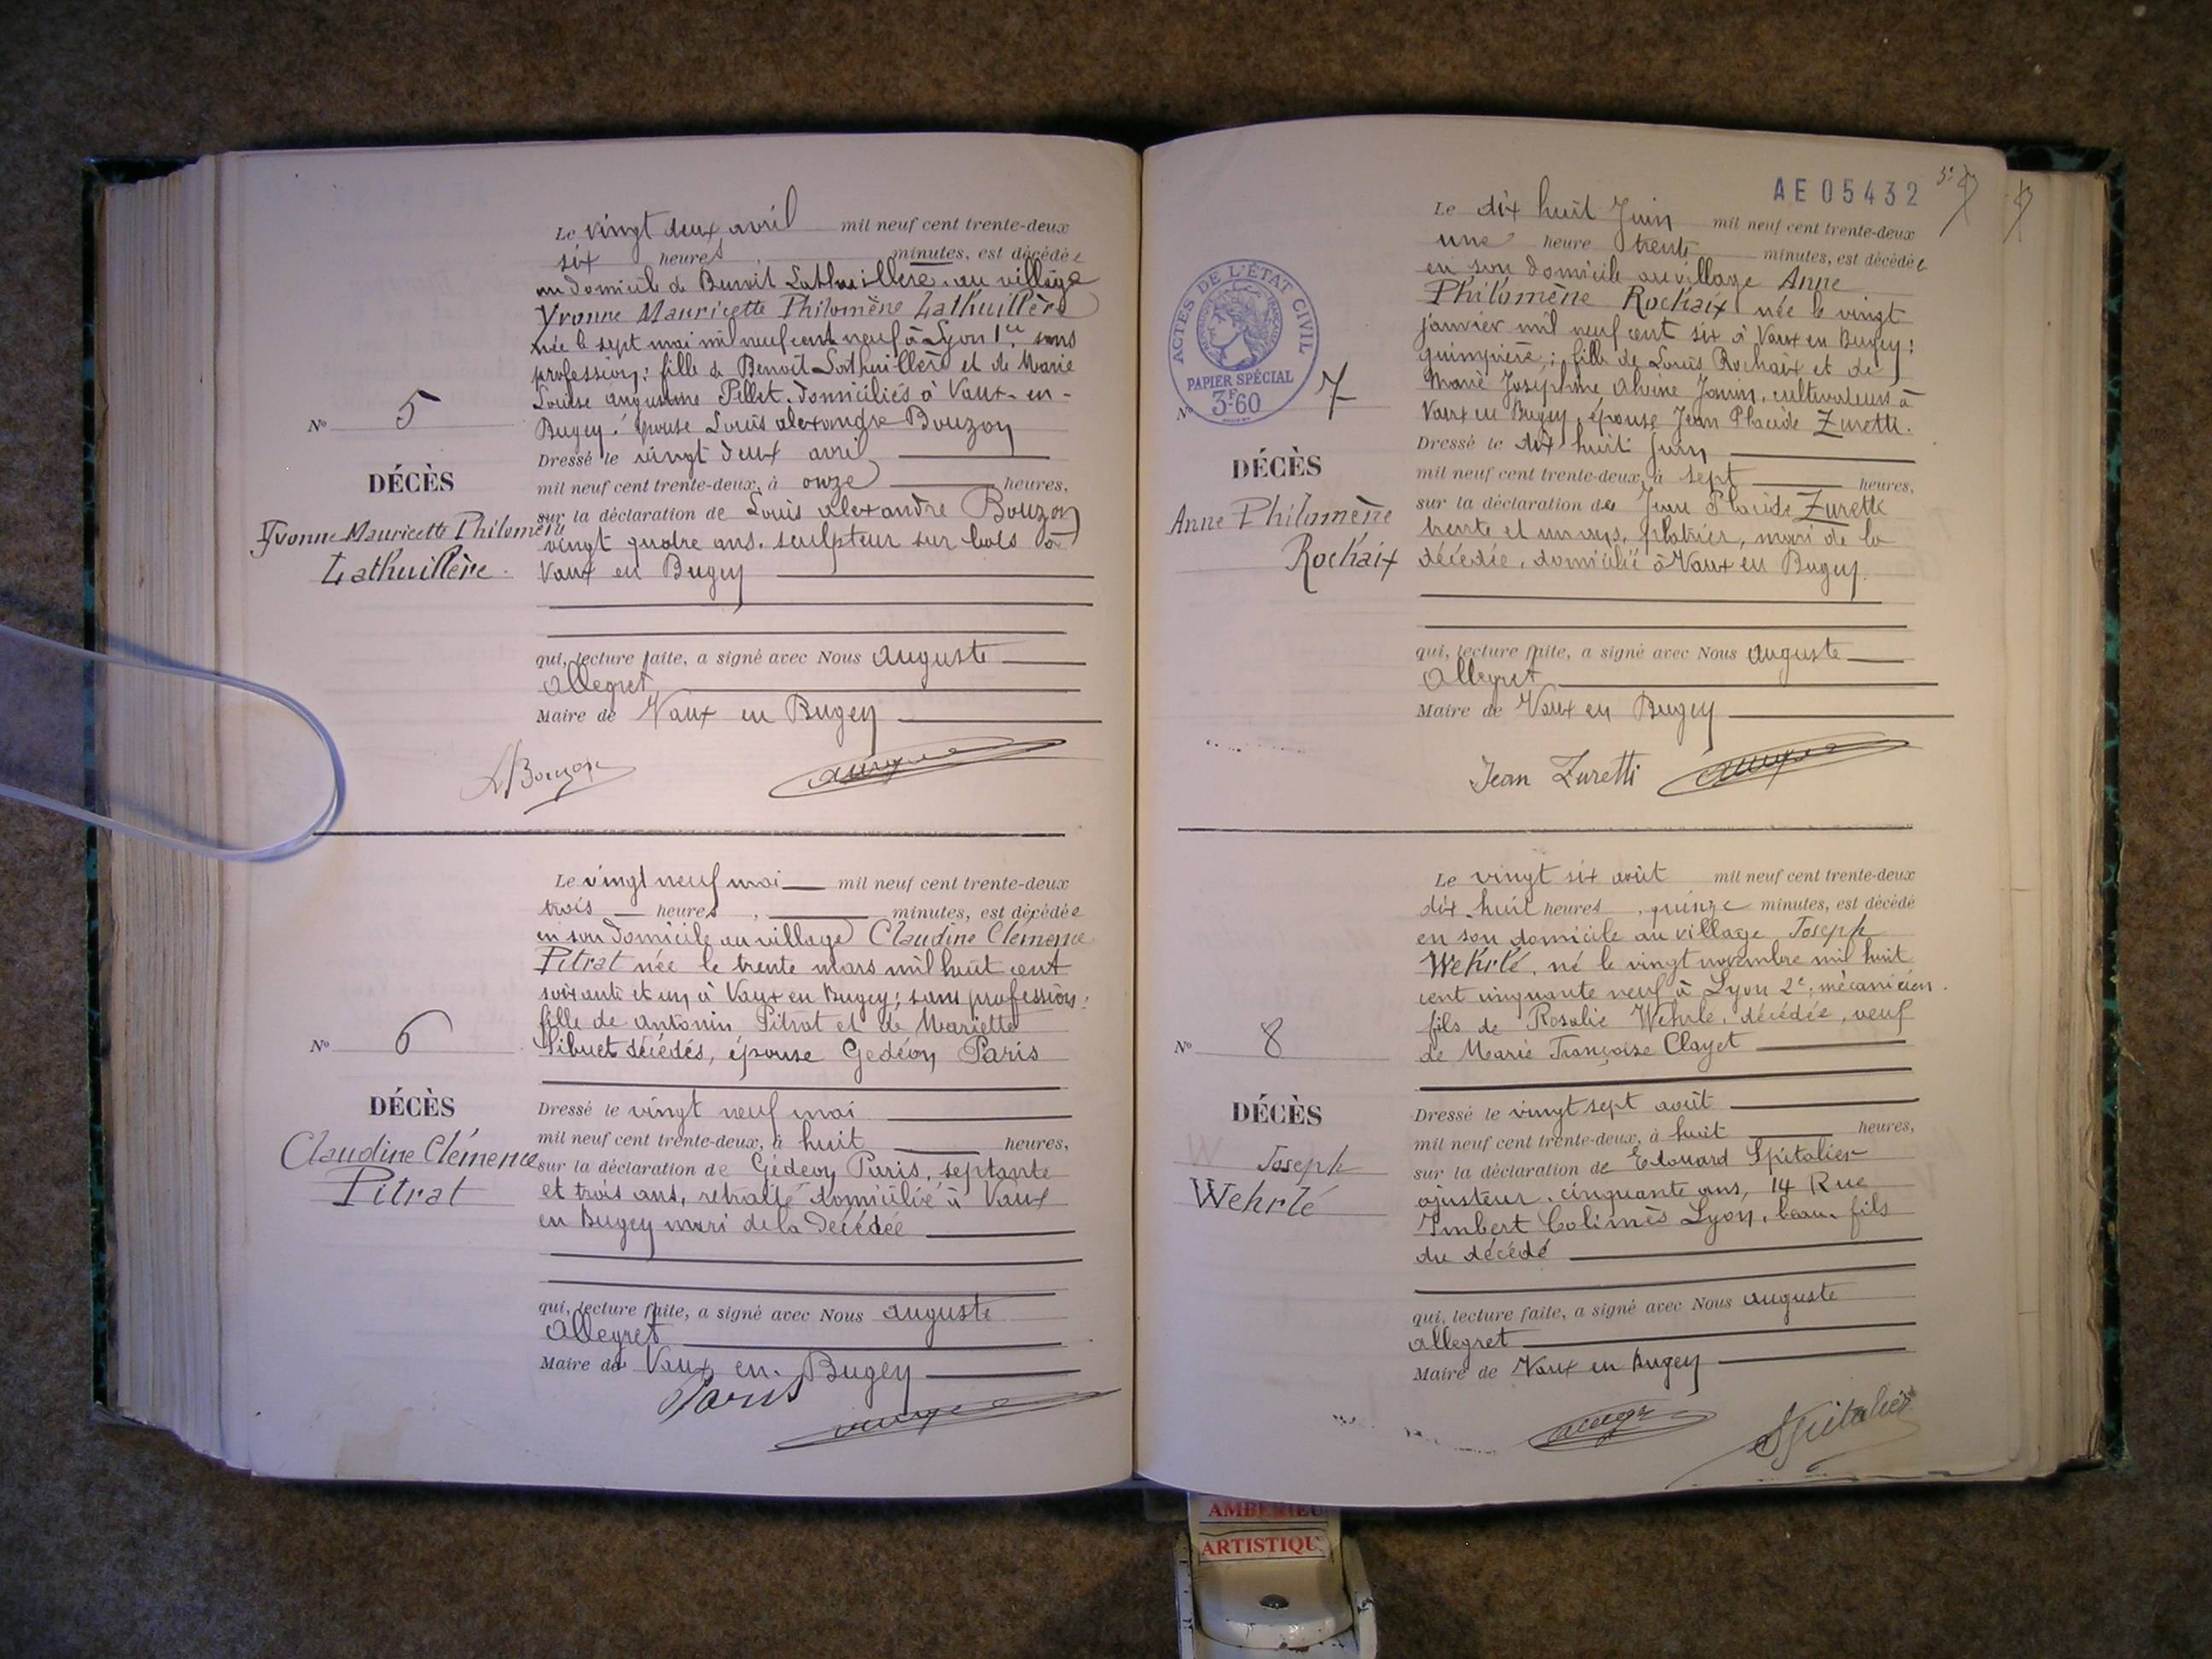 Le vingt deux avril mil neuf cent trente-deux
six heures, minutes, est décédée
au domicile de Benoit Lathuillère, au village
Yvonne Mauricette Philomène Lathuillère
née le sept mai mil neuf cent neuf à Lyon 1er, sans
profession; fille de Benoît Lathuillère et de Marie
Louise augustine Pellet, domiciliés à Vaux-en-
Bugey. épouse Louis alexandre Bouzon
Nº 5
Dressé le vingt deux avril
mil neuf cent trente-deux, à onze heures,
DÉCÈS
Yvonne Mauricette Philomène
Lathuillère.
sur la déclaration de Louis alexandre Bouzon
vingt quatre ans, sculpteur sur bois à
Vaux en Bugey
qui, lecture faite, a signé avec Nous auguste
Allegret
Maire de Vaux en Bugey
LBouzon
Le vingt neuf mai mil neuf cent trente-deux
trois heures, minutes, est décédée
en son domicile au village Claudine Clémence
Pitrat née le trente mars mil huit cent
soixante et un à Vaux en Bugey; sans profession;
fille de antonin Pitrat et de Mariette
Sibuet décédés, épouse Gedéon Paris
Nº 6
DÉCÈS
Claudine Clémence
Pitrat
Dressé le vingt neuf mai
mil neuf cent trente-deux, à huit heures,
sur la déclaration de Gédeon Paris, septante
et trois ans, retraité domicilié à Vaux
en Bugey mari de la décédée
qui, lecture faite, a signé avec Nous auguste
Allegret
Maire de Vaux en Bugey
Paris
AE05432
Le dix huit Juin mil neuf cent trente-deux
une heure trente minutes, est décédée
en son domicile au village Anne
Philomène Rochaix née le vingt
janvier mil neuf cent six à Vaux en Bugey;
guimpière; fille de Louis Rochaix et de
Marie Josephine Janin, cultivateurs à
Vaux en Bugey, épouse Jean Placide Zuretti.
ACTES DE L'ÉTAT CIVIL
PAPIER SPÉCIAL
3F60
Nº 7
DÉCÈS
Anne Philomène
Rochaix
Dressé le dix huit juin
mil neuf cent trente-deux, à sept heures,
sur la déclaration de Jean Placide Zuretti
trente et un ans, plâtrier, mari de la
décédée, domicilié à Vaux en Bugey.
qui, lecture faite, a signé avec Nous auguste
Allegret
Maire de Vaux en Bugey
Jean Zuretti
Le vingt six août mil neuf cent trente-deux
dix huit heures, quinze minutes, est décédé
en son domicile au village Joseph
Wehrlé, né le vingt novembre mil huit
cent cinquante neuf à Lyon 2e, mécanicien.
fils de Rosalie Wehrlé, décédée, veuf
de Marie Françoise Clayet
Nº 8
DÉCÈS
Joseph
Wehrlé
Dressé le vingt sept août
mil neuf cent trente-deux, à huit heures,
sur la déclaration de Edouard Spitalier
ajusteur, cinquante ans, 14 Rue
Imbert Colimès Lyon, beau-fils
du décédé
qui, lecture faite, a signé avec Nous auguste
allegret
Maire de Vaux en Bugey
Spitalier
AMBERIEU
ARTISTIQU